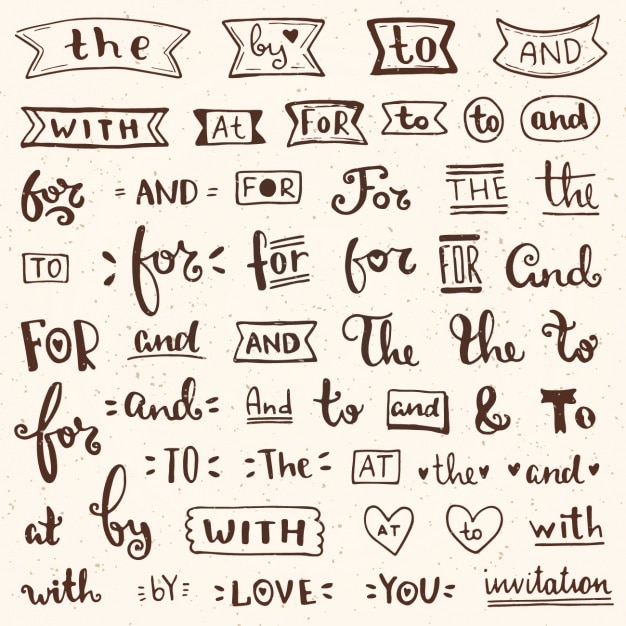 the by to AND
WITH At FOR to to and
for = AND = FOR For THE the
TO for for for FOR and
FOR and AND The the to
for and And to and & To
TO The AT the and
at by WITH AT to with
with bY LOVE YOU invitation